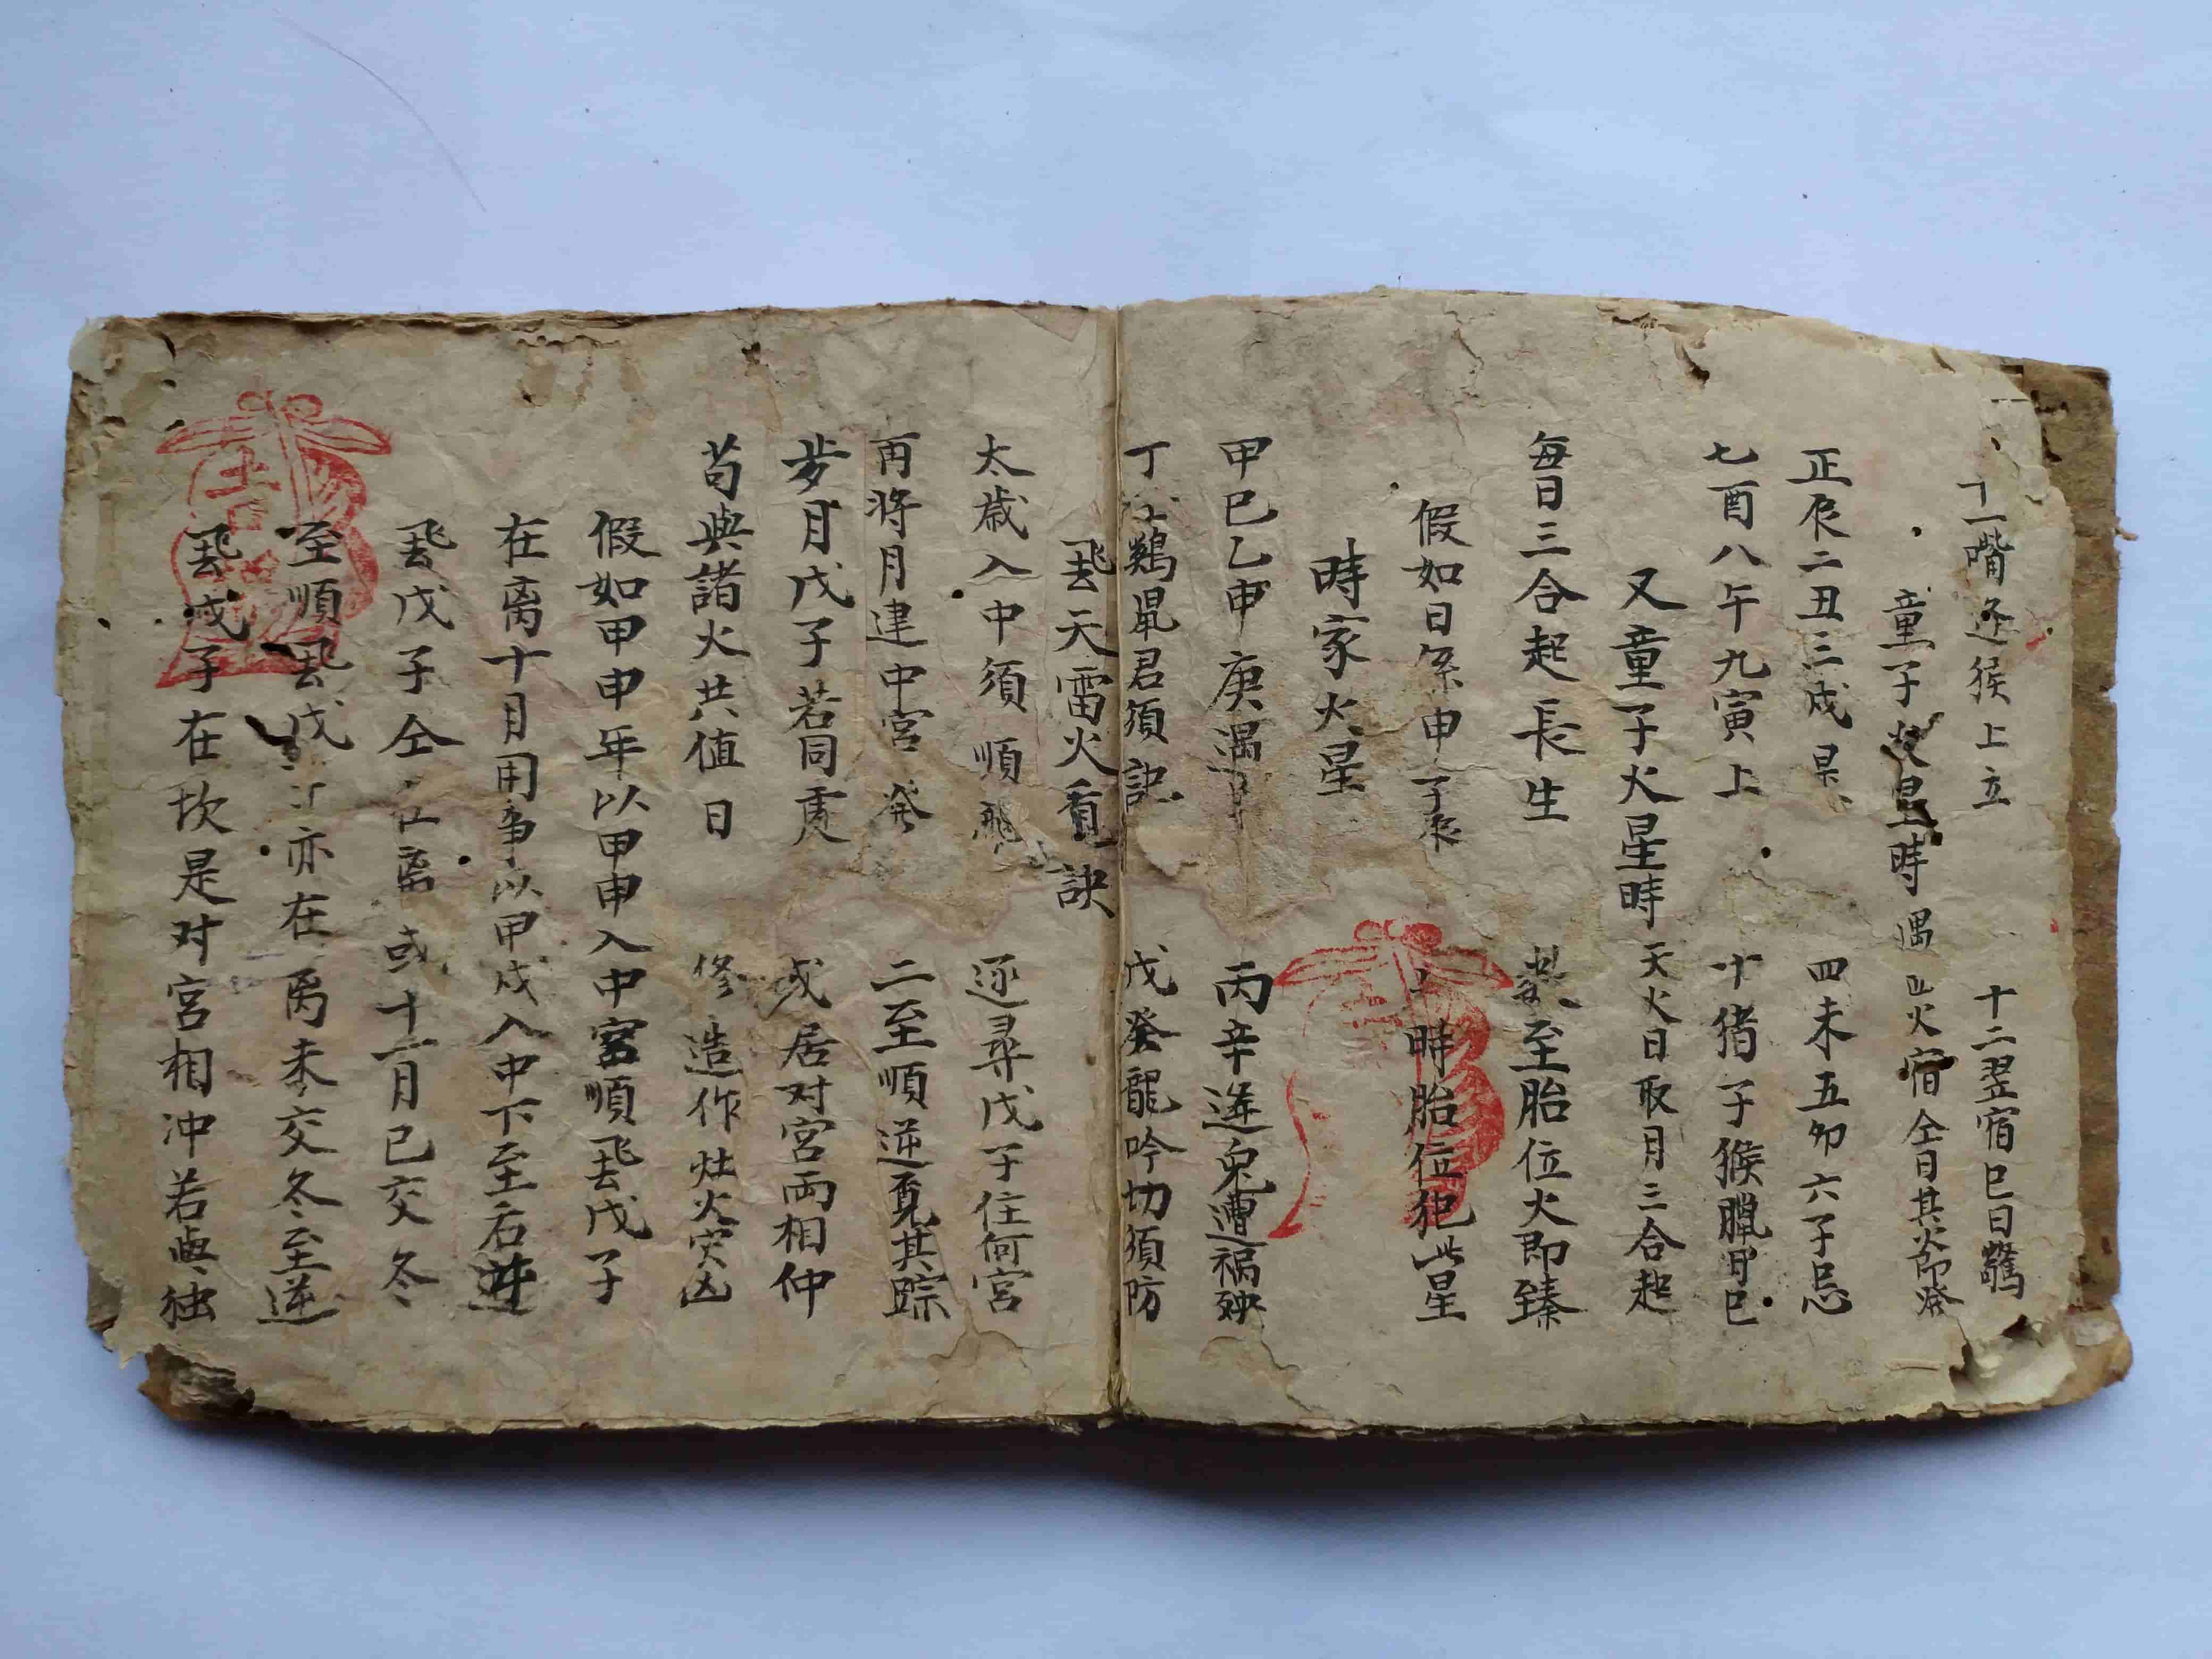 十一嘴逢猴上立 十二翌宿巳日驚
童子火星時 遇火宿仝日其火即發
正辰二丑三戍是 四未五卯六子忌
七酉八午九寅上 十猪子猴臘月巳
又童子火星時 天火日取月三合起
每日三合起長生 數至胎位火即臻
假如日係申子辰 時胎位犯此星
時家火星
甲巳乙申庚遇 丙辛逢兔遭禍殃
丁鷄鼠君須記 戊癸龍吟切須防
飛天雷火看訣
太歲入中須順飛 逐尋戊子住何宮
再將月建中宮發 二至順逆覓其踪
歲月戊子若同處 或居对宮両相冲
苟與諸火共值日 修造作灶火灾凶
假如甲申年以甲申入中宮順飛戊子
在离十月用事以甲戍入中下至后逆
飛戊子仝在离或十一月已交冬
至順飛戊子亦在离未交冬至逆
飛戊子在坎是对宮相冲若與独